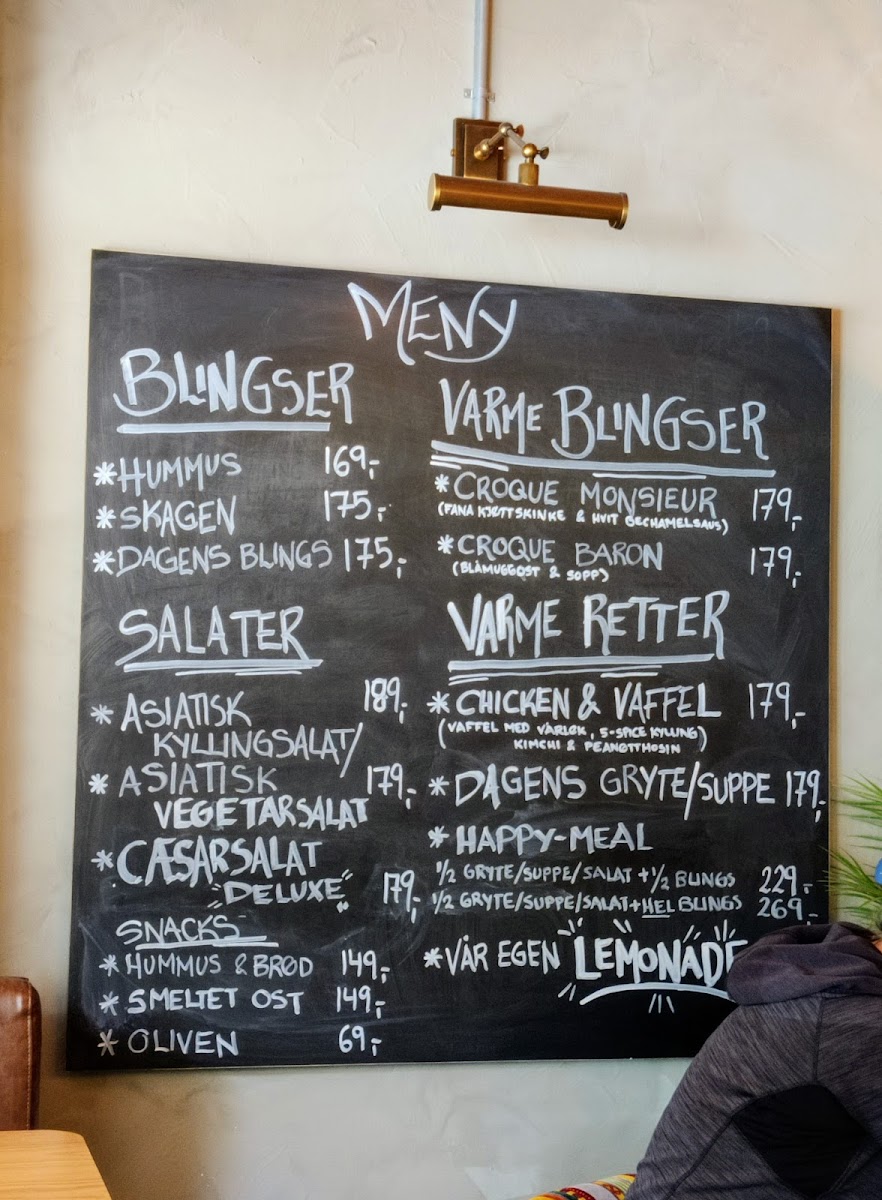 MENY
BLINGSER
*HUMMUS 169,-
*SKAGEN 175,-
*DAGENS BLINGS 175,-
SALATER
*ASIATISK 189,-
KYLLINGSALAT/
*ASIATISK 179,-
VEGETARSALAT
*CÆSARSALAT
DELUXE 179,-
SNACKS
*HUMMUS & BRØD 149,-
*SMELTET OST 149,-
*OLIVEN 69,-
VARME BLINGSER
*CROQUE MONSIEUR 179,-
(FANA KJØTTSKINKE & HVIT BECHAMELSAUS)
*CROQUE BARON 179,-
(BLÅMUGGOST & SOPP)
VARME RETTER
*CHICKEN & VAFFEL 179,-
(VAFFEL MED VÅRLØK, 5-SPICE KYLLING)
KIMCHI & PEANØTTMOSIN
*DAGENS GRYTE/SUPPE 179,-
*HAPPY-MEAL
1/2 GRYTE/SUPPE/SALAT + 1/2 BLINGS 229,-
1/2 GRYTE/SUPPE/SALAT + HEL BLINGS 269,-
*VÅR EGEN LEMONADE